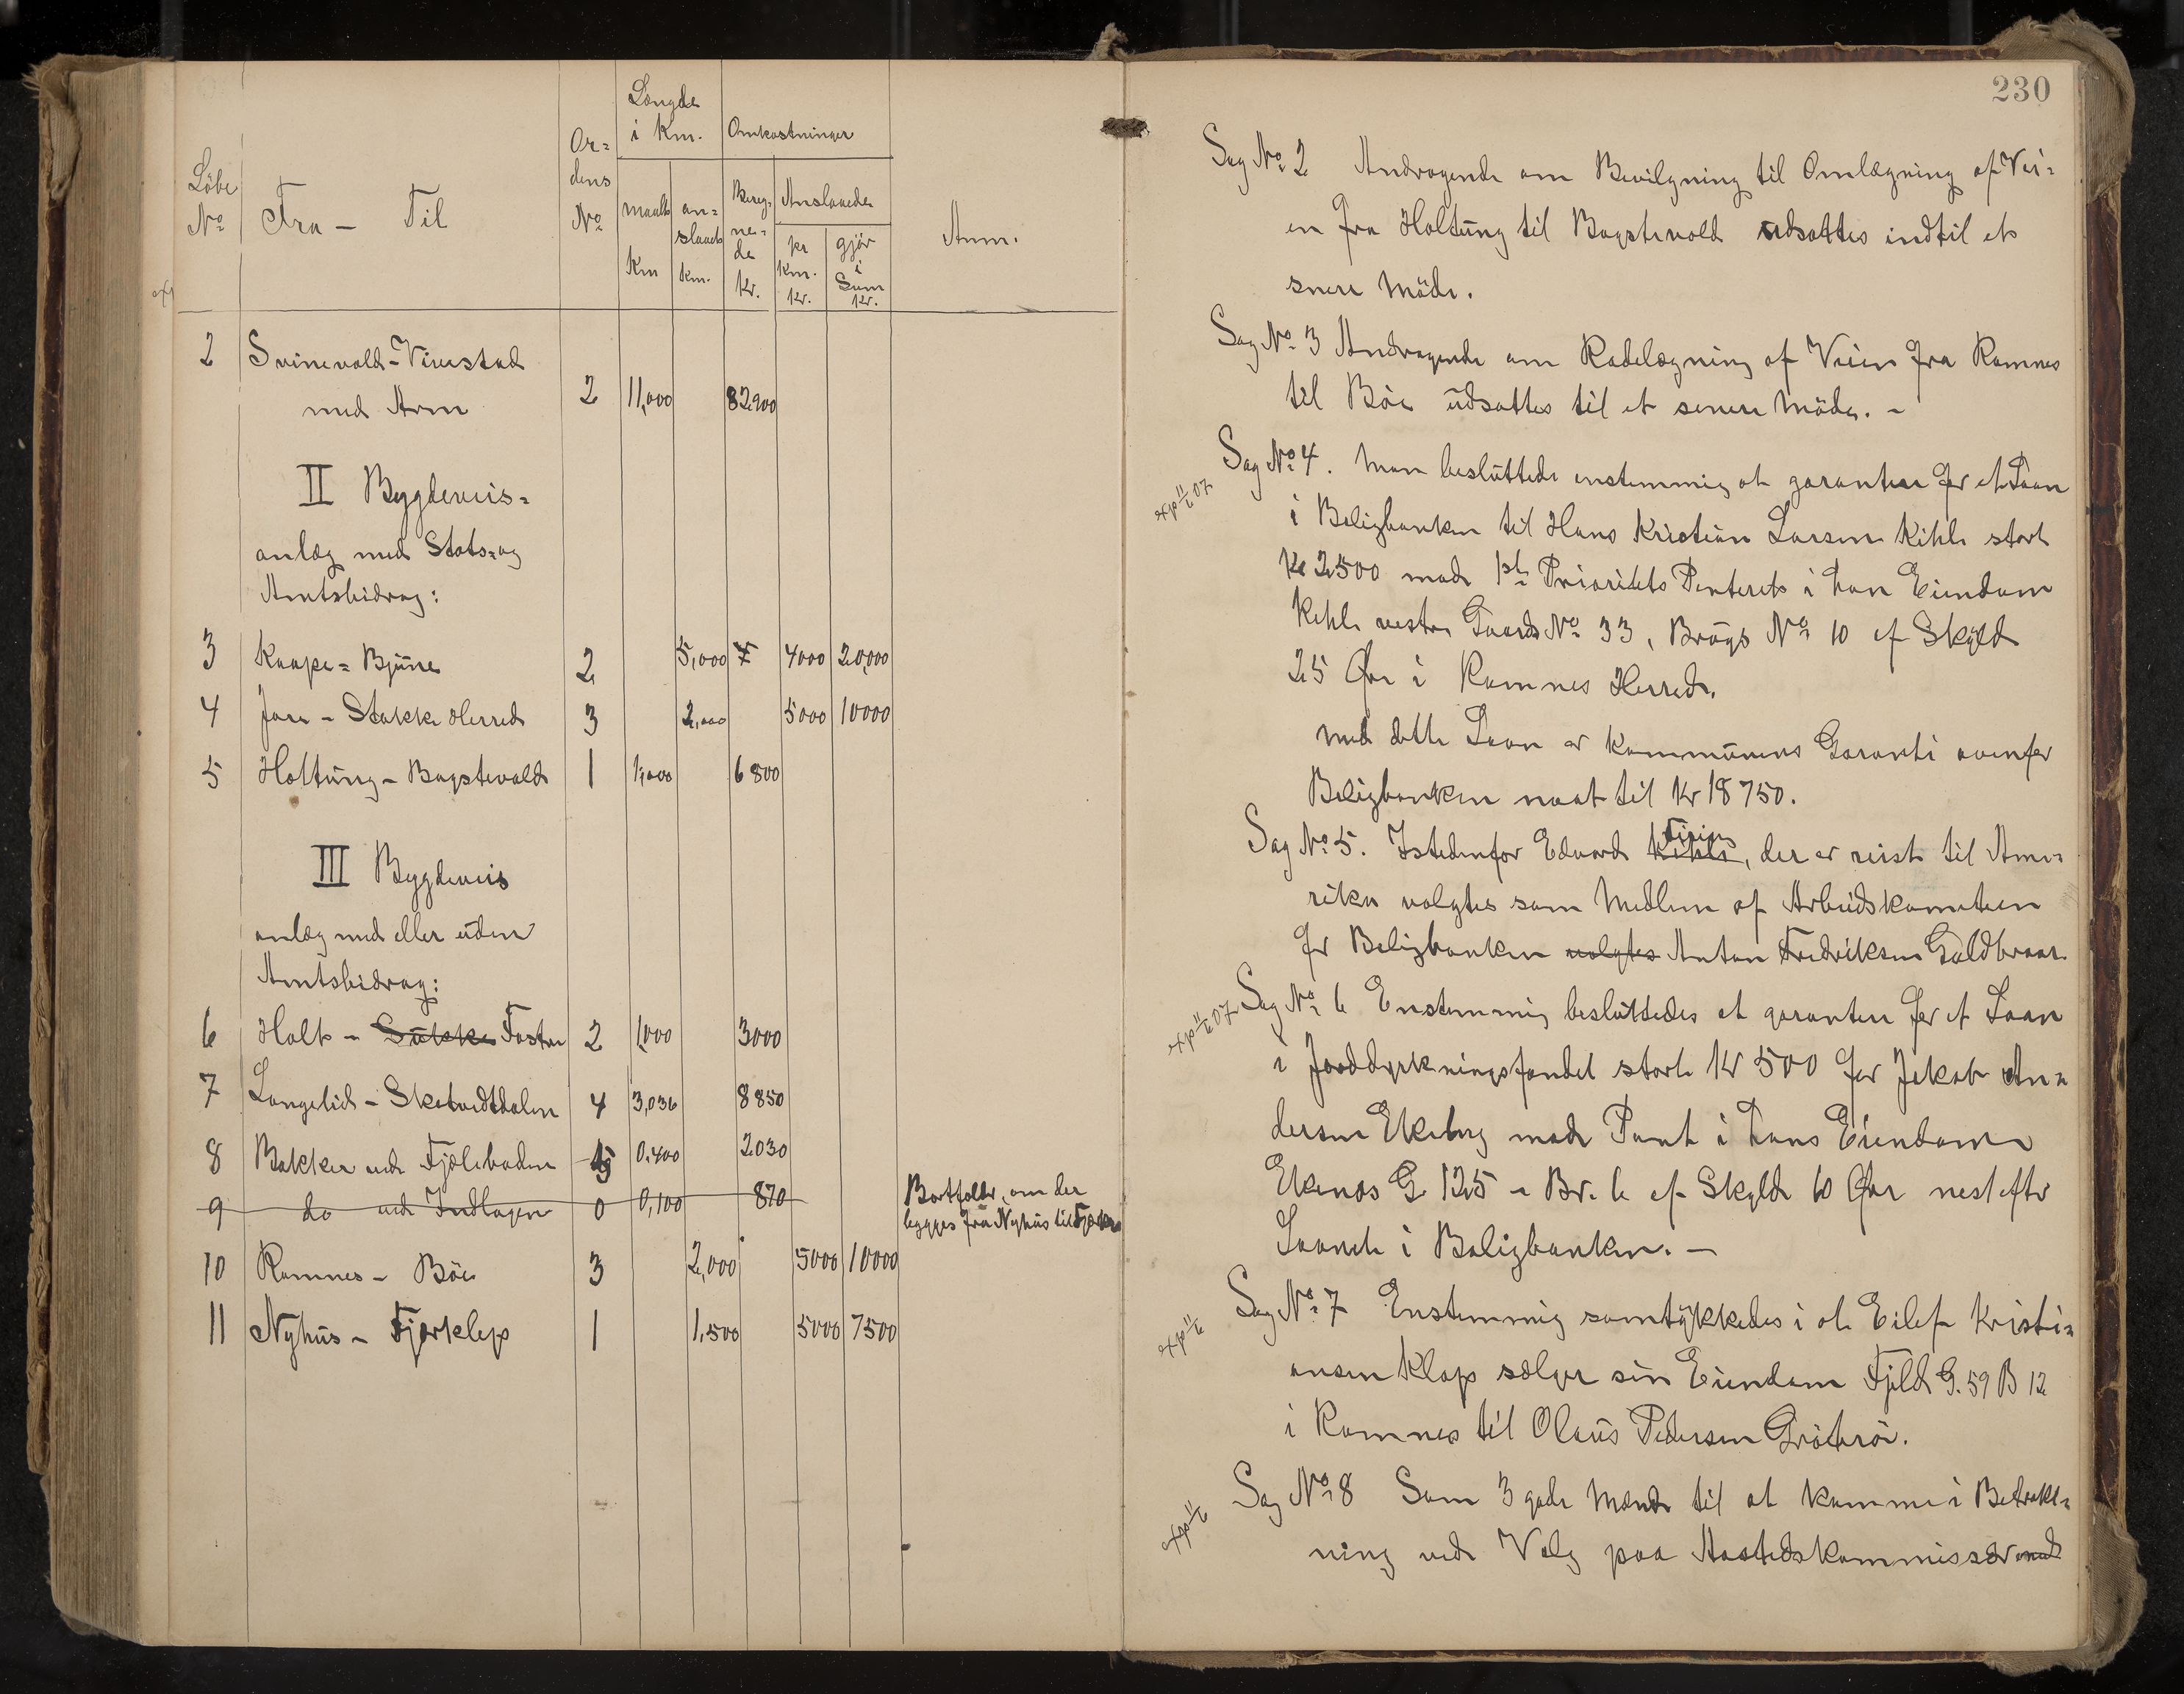 Löbe
No
Fra - Til
Or=
dens
No
Længde
i Km.
maalt
Km
an=
slaaet
km.
Omkostninger
Bereg=
ne=
de
Kr.
Anslaaede
pr
km.
kr.
gjør
i
Sum
Kr.
Anm.
2 Svinevold - Virestad
med Arm 2 11,000 82900
II Bygdeveis=
anlæg med Stats= og
Amtsbidrag:
3 Kaape = Bjüne 2 5,000 4000 20,000
4 Jare - Stokke Herred 3 2,000 5000 10000
5 Holtüng - Bogstevold 1 1,000 6800
III Bygdeveis
anlæg med eller üden
Amtsbidrag:
6 Holt - Fosten 2 1,000 3000
7 Langelid - Sketvedtdalen 4 3,036 8850
8 Bakken ved Fjæleboden 0,400 2030
9 do ved Indlagen 0 0,100 870 Bortfalder, om der
bygges fra Nyhüs til
10 Ramnes - Böe 3 2,000 5000 10000
11 Nyhüs - Fjærklep 1 1,500 5000 7500
230
Sag No 2 Andragende om Bevilgning til Omlægning af Vei=
en fra Holtüng til Bogstevold üdsattes indtil et
snere Möde.
Sag No 3 Andragende om Rodelægning af Veien fra Ramnes
til Böe üdsattes til et senere Möde. -
exp 11/6 07
Sag No 4. Man beslüttede enstemmig at garantere for et Laan
i Boligbanken til Hans Kristian Larsen Kihle stort
Kr 2500 mod 1ste Prioritets Panteret i han Eiendom
Kihle vestre Gaards No 33, Brügs No 10 af Skyld
25 Øre i Ramnes Herred.
Med dette Laan er Kommünens Garanti ovenfor
Boligbanken naat til Kr 18750.
Sag No 5. Istedenfor Edvard Kihle, der er reist til Ame=
rika valgtes som Medlem af Arbeidskomiteen
for Boligbanken valgtes Anton Fredriksen Güldkroen
exp 11/6 07
Sag No 6 Enstemmig beslüttedes at garantere for et Laan
i Jorddyrkningsfondet stort Kr 500 for Jakob An=
dersen Ekeberg mod Pant i hans Eiendom
Ekenes G. 125 - Br. 6 af Skyld 60 Øre nest efter
Laanet i Boligbanken. -
exp 11/6
Sag No 7 Enstemmig samtykkedes i at Eilef Kristi=
ansen Klop sælger sin Eiendom Fjeld G. 59 B 12
i Ramnes til Olaüs Pedersen Gröterö.
exp 11/6
Sag No 8 Som 3 gode Mænd til at komme i Betrakt=
ning ved Valg paa Aastedskommissær med